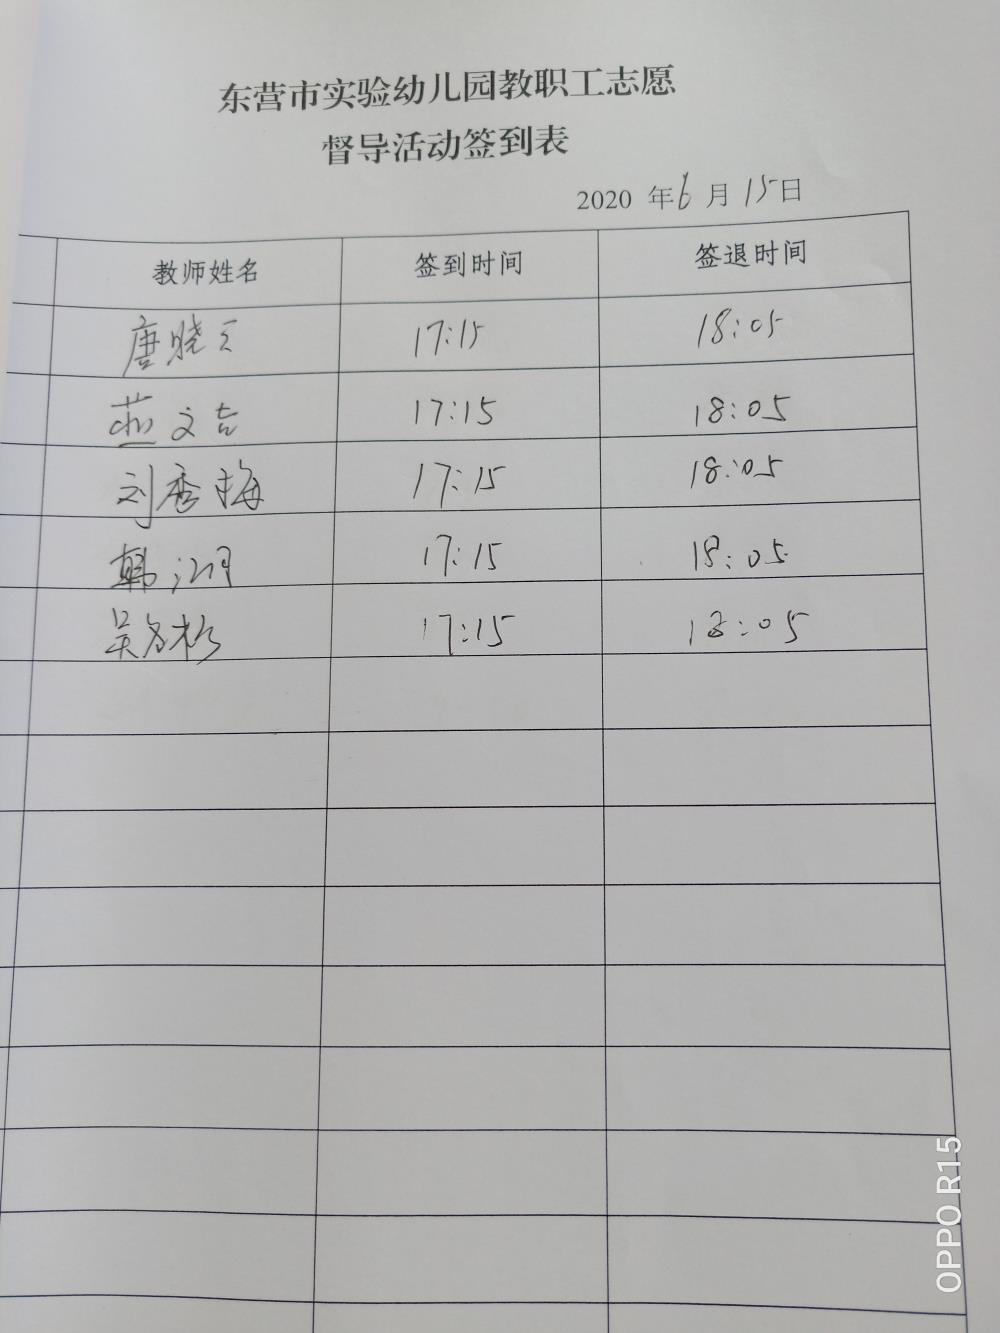 东营市实验幼儿园教职工志愿
督导活动签到表
2020 年6月15日
教师姓名 签到时间 签退时间
唐晓 17:15 18:05
燕文吉 17:15 18:05
刘秀梅 17:15 18:05
韩润 17:15 18:05
吴 17:15 18:05
OPPO R15